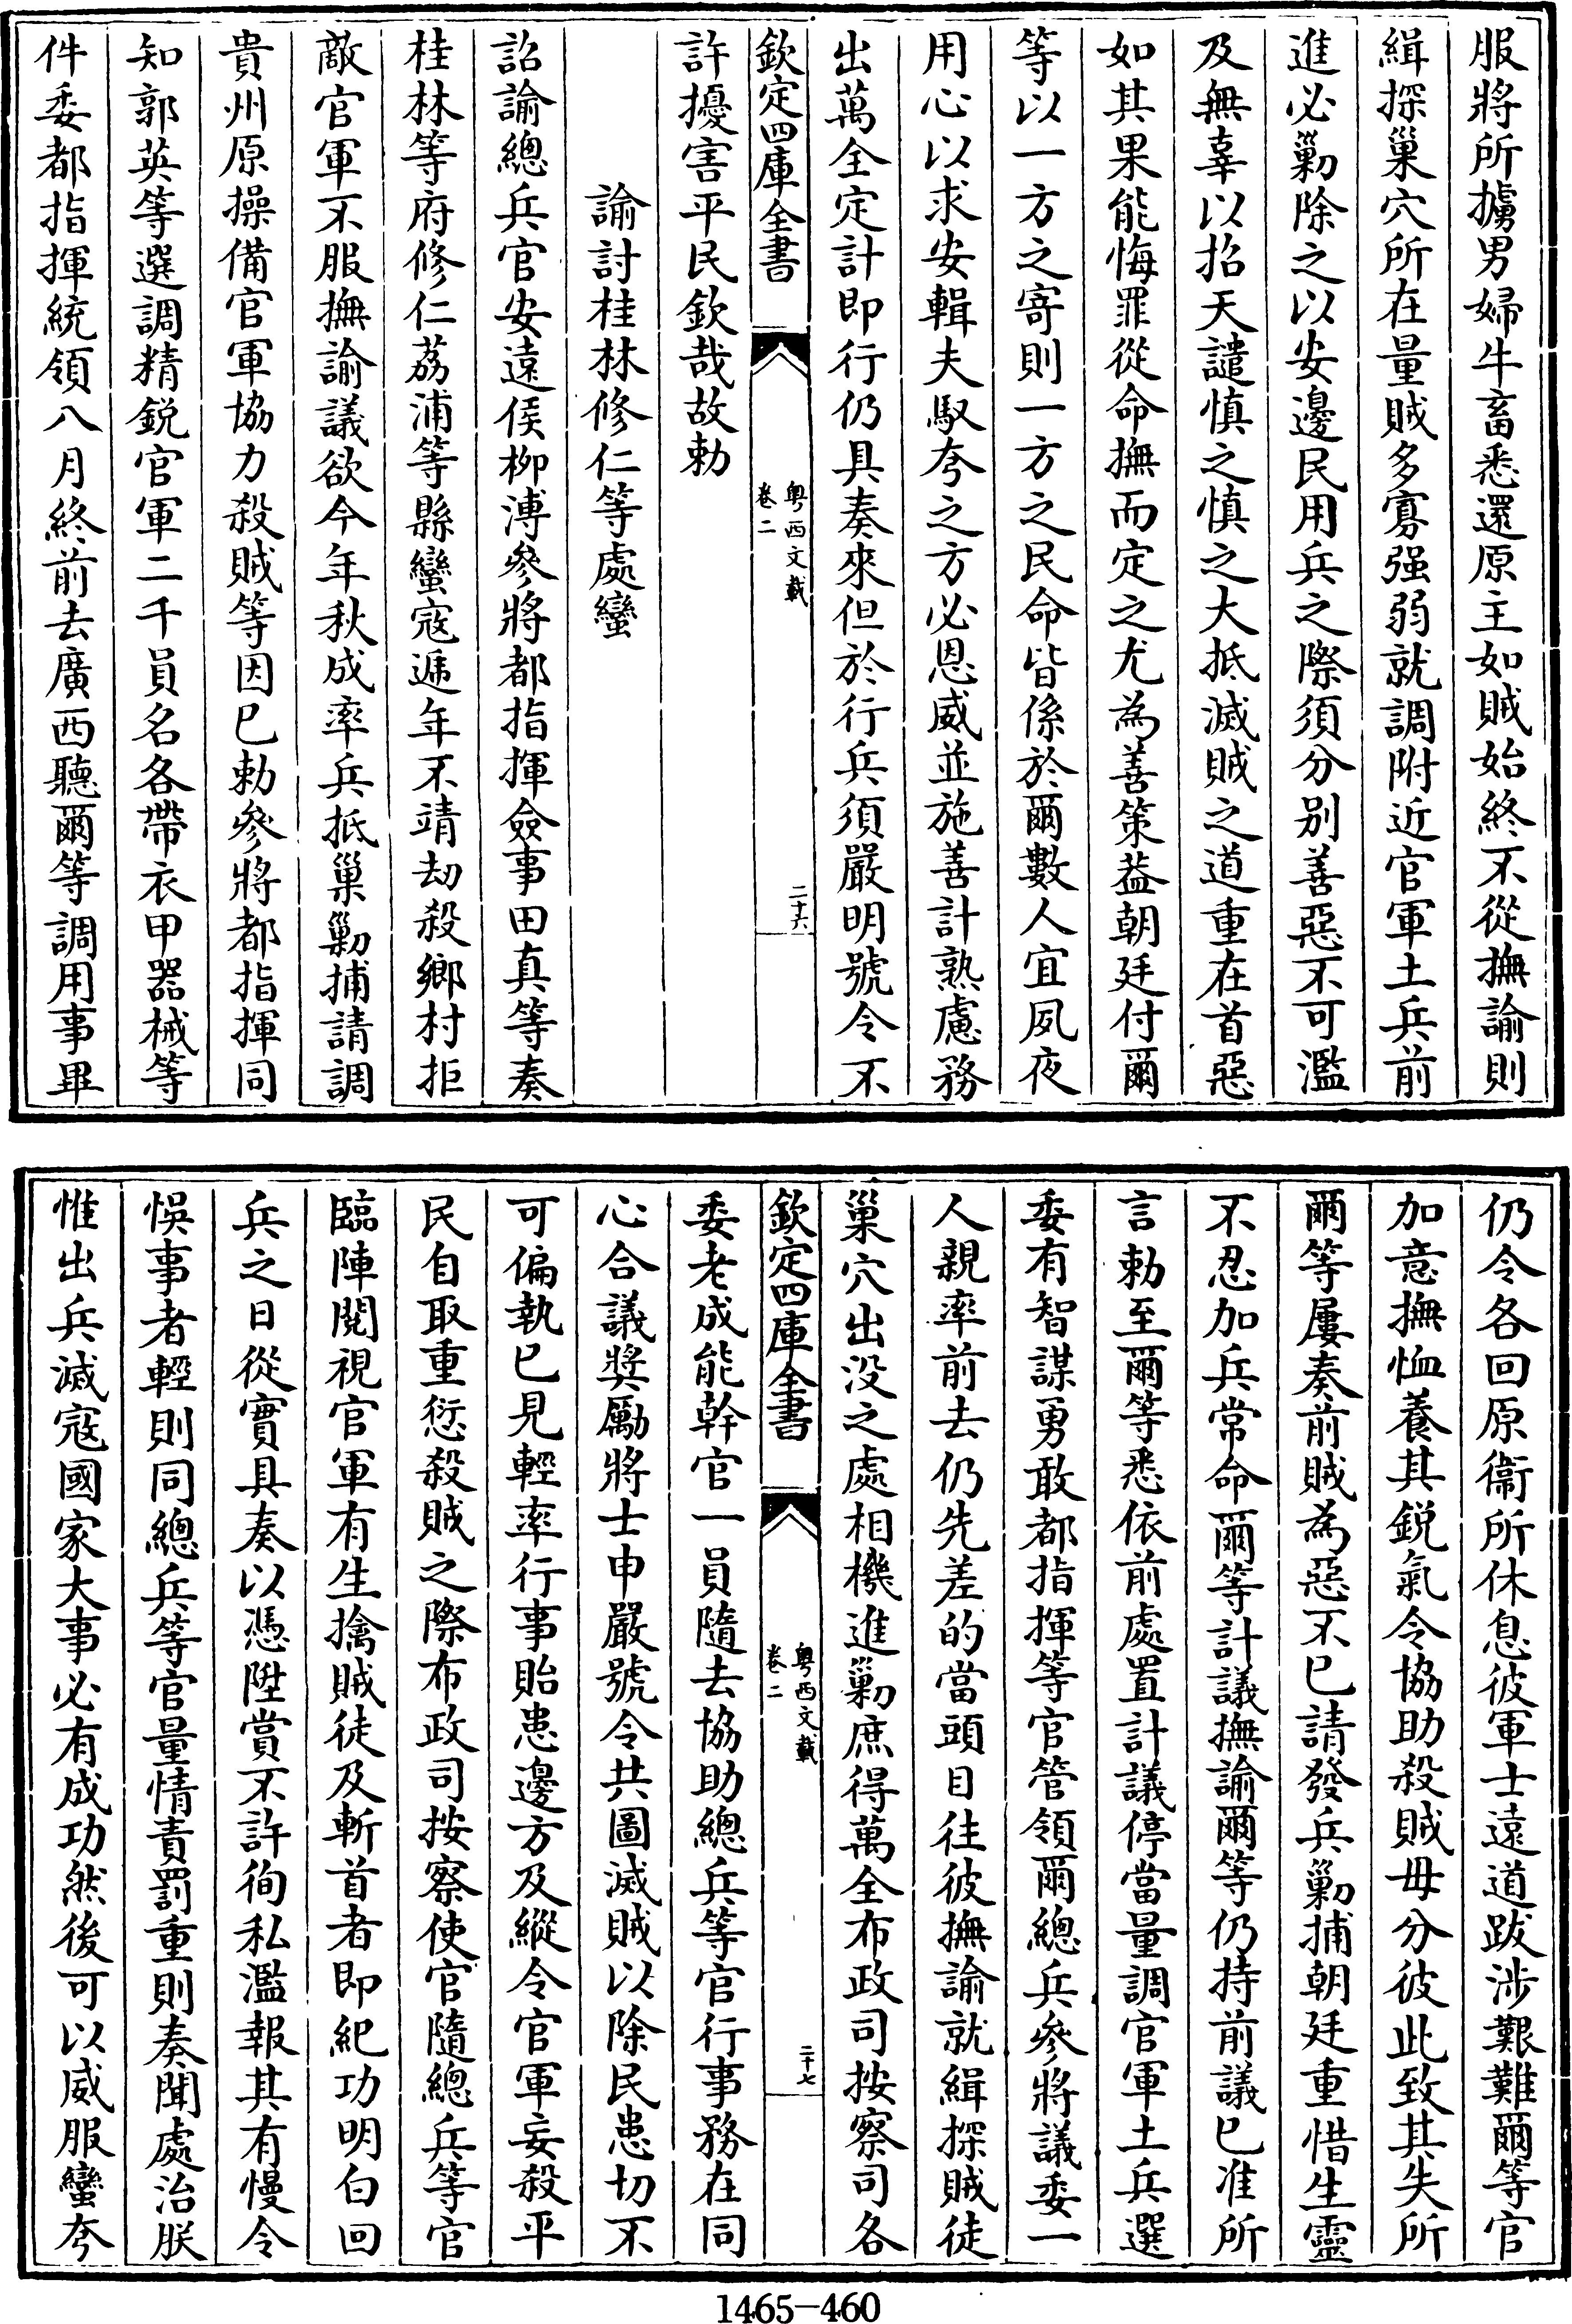 服將所擄男婦牛畜悉還原主如賊始終不從撫諭則
緝探巢穴所在量賊多寡强弱就調附近官軍土兵前
進必勦除之以安邊民用兵之際須分别善惡不可濫
及無辜以招天譴慎之慎之大抵滅賊之道重在首惡
如其果能悔罪從命撫而定之尤為善策葢朝廷付爾
等以一方之寄則一方之民命皆係於爾數人宜夙夜
用心以求安輯夫馭夸之方必恩威並施善計熟慮務
出萬全定計即行仍具奏來但於行兵須嚴明號令不
欽定四庫全書
粤西文載
卷二
二十六
許擾害平民欽哉故勅
諭討桂林修仁等處蠻
詔諭總兵官安遠侯柳溥參將都指揮僉事田真等奏
桂林等府修仁荔浦等縣蠻寇遞年不靖刼殺鄉村拒
敵官軍不服撫諭議欲今年秋成率兵抵巢勦捕請調
貴州原操備官軍協力殺賊等因已勅參將都指揮同
知郭英等選調精鋭官軍二千員名各帶衣甲器械等
件委都指揮統領八月終前去廣西聽爾等調用事畢
仍令各回原衞所休息彼軍士遠道跋涉艱難爾等官
加意撫恤養其鋭氣令協助殺賊毋分彼此致其失所
爾等屢奏前賊為惡不已請發兵勦捕朝廷重惜生靈
不忍加兵常命爾等計議撫諭爾等仍持前議已准所
言勅至爾等悉依前處置計議停當量調官軍土兵選
委有智謀勇敢都指揮等官管領爾總兵參將議委一
人親率前去仍先差的當頭目往彼撫諭就緝探賊徒
巢穴出没之處相機進勦庶得萬全布政司按察司各
欽定四庫全書
粤西文載
卷二
二十七
委老成能幹官一員隨去協助總兵等官行事務在同
心合議奬勵將士申嚴號令共圖滅賊以除民患切不
可偏執已見輕率行事貽患邊方及縱令官軍妄殺平
民自取重愆殺賊之際布政司按察使官隨總兵等官
臨陣閱視官軍有生擒賊徒及斬首者即紀功明白回
兵之日從實具奏以憑陞賞不許徇私濫報其有慢令
悞事者輕則同總兵等官量情責罰重則奏聞處治朕
惟出兵滅寇國家大事必有成功然後可以威服蠻夸
1465-460